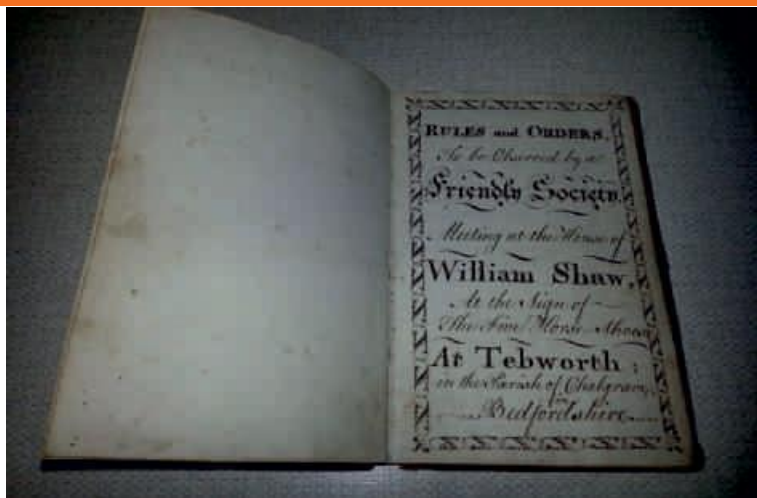 RULES and ORDERS.
To be Observed by a
Friendly Society.
Meeting at the House of
William Shaw.
At the Sign of
The Five Horse Shoes
At Tebworth:
in the Parish of Chalgrave,
in
Bedfordshire